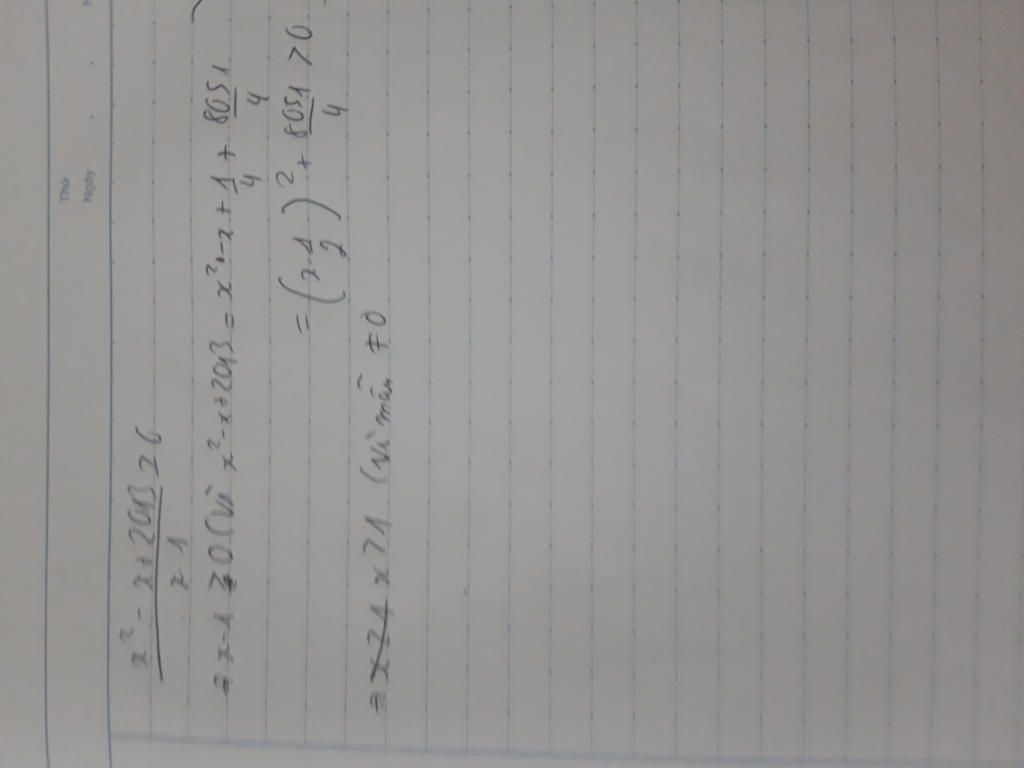 Thứ
Ngày
x² - x + 2013 ≥ 6
x - 1
⇒ x - 1 ≥ 0 (vì x² - x + 2013 = x² - x + 1/4 + 8051/4
= (x - 1/2)² + 8051/4 > 0
⇒ x ≥ 1 x > 1 (vì mẫu ≠ 0